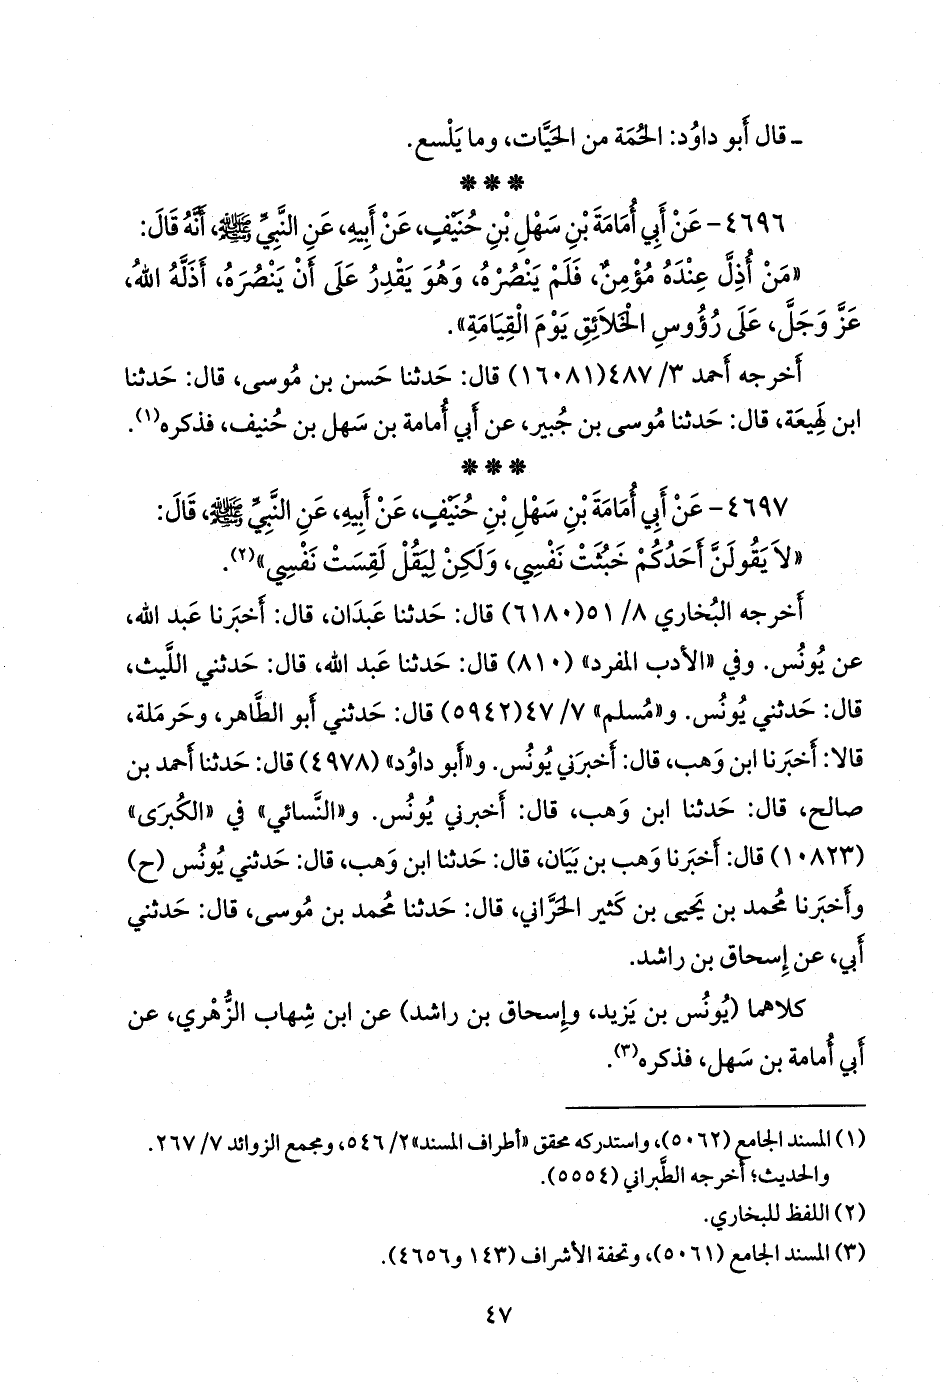 ـ قال أَبو داوُد: الحُمَة من الحَيَّات، وما يَلْسع.
* * *
٤٦٩٦- عَنْ أَبِي أُمَامَةَ بْنِ سَهْلِ بْنِ حُنَيْفٍ، عَنْ أَبِيهِ، عَنِ النَّبِيِّ ﷺ، أَنَّهُ قَالَ:
«مَنْ أُذِلَّ عِنْدَهُ مُؤْمِنٌ، فَلَمْ يَنْصُرْهُ، وَهُوَ يَقْدِرُ عَلَى أَنْ يَنْصُرَهُ، أَذَلَّهُ اللهُ،
عَزَّ وَجَلَّ، عَلَى رُؤُوسِ الْخَلَائِقِ يَوْمَ الْقِيَامَةِ».
أَخرجه أَحمد ٣/ ٤٨٧(١٦٠٨١) قال: حَدثنا حَسن بن مُوسى، قال: حَدثنا
ابن لَهِيعَة، قال: حَدثنا مُوسى بن جُبير، عن أَبي أُمامة بن سَهل بن حُنيف، فذكره(١).
* * *
٤٦٩٧- عَنْ أَبِي أُمَامَةَ بْنِ سَهْلِ بْنِ حُنَيْفٍ، عَنْ أَبِيهِ، عَنِ النَّبِيِّ ﷺ، قَالَ:
«لَا يَقُولَنَّ أَحَدُكُمْ خَبُثَتْ نَفْسِي، وَلَكِنْ لِيَقُلْ لَقِسَتْ نَفْسِي»(٢).
أَخرجه البُخاري ٨/ ٥١(٦١٨٠) قال: حَدثنا عَبدَان، قال: أَخبَرنا عَبد الله،
عن يُونُس. وفي «الأدب المفرد» (٨١٠) قال: حَدثنا عَبد الله، قال: حَدثني اللَّيث،
قال: حَدثني يُونُس. و«مُسلم» ٧/ ٤٧(٥٩٤٢) قال: حَدثني أَبو الطَّاهر، وحَرمَلة،
قالا: أَخبَرنا ابن وَهب، قال: أَخبَرَني يُونُس. و«أَبو داوُد» (٤٩٧٨) قال: حَدثنا أَحمد بن
صالح، قال: حَدثنا ابن وَهب، قال: أَخبرني يُونُس. و«النَّسائي» في «الكُبرَى»
(١٠٨٢٣) قال: أَخبَرنا وَهب بن بَيَان، قال: حَدثنا ابن وَهب، قال: حَدثني يُونُس (ح)
وأَخبَرنا مُحمد بن يَحيى بن كَثير الحَرَّاني، قال: حَدثنا مُحمد بن مُوسى، قال: حَدثني
أَبي، عن إِسحاق بن راشد.
كلاهما (يُونُس بن يَزيد، وإِسحاق بن راشد) عن ابن شِهاب الزُّهْري، عن
أَبي أُمامة بن سَهل، فذكره(٣).
(١) المسند الجامع (٥٠٦٢)، واستدركه محقق «أطراف المسند» ٢/ ٥٤٦، ومجمع الزوائد ٧/ ٢٦٧.
والحديث؛ أخرجه الطَّبراني (٥٥٥٤).
(٢) اللفظ للبخاري.
(٣) المسند الجامع (٥٠٦١)، وتحفة الأشراف (١٤٣ و٤٦٥٦).
٤٧